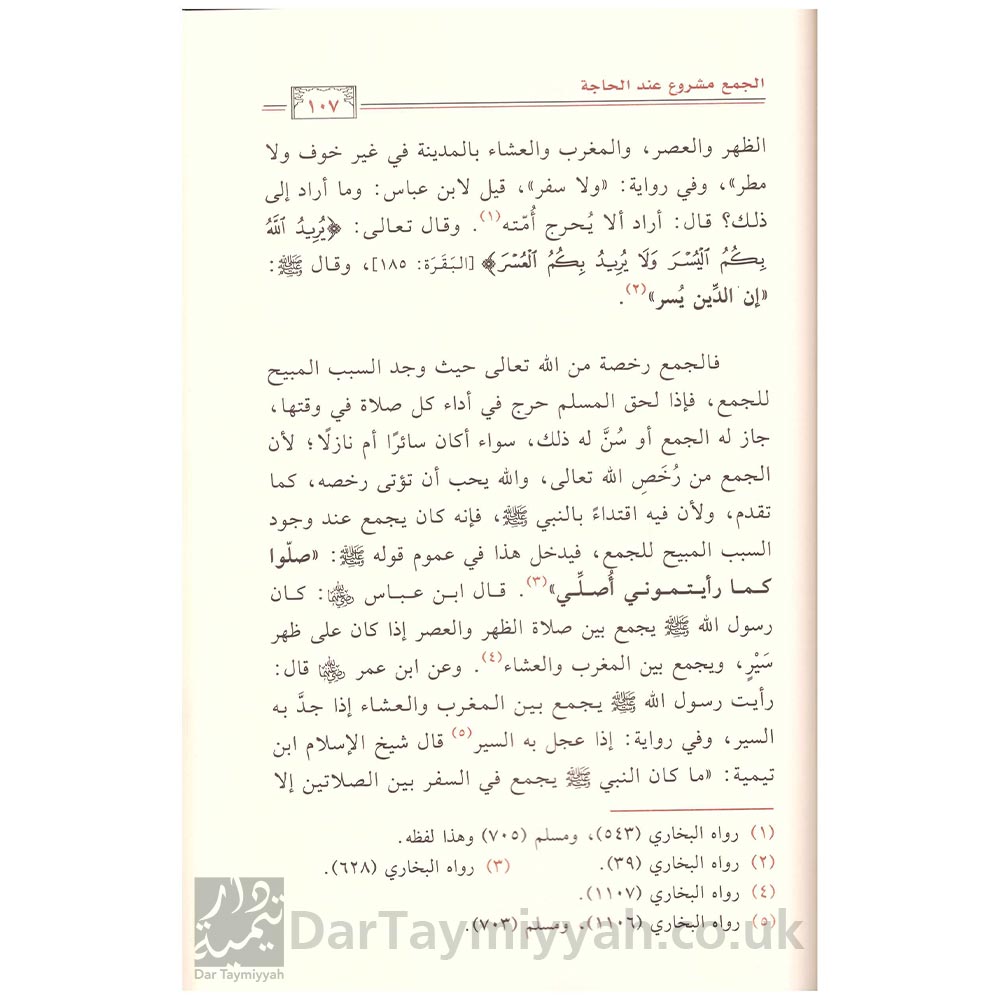 الجمع مشروع عند الحاجة
١٠٧
الظهر والعصر، والمغرب والعشاء بالمدينة في غير خوف ولا
مطر»، وفي رواية: «ولا سفر»، قيل لابن عباس: وما أراد إلى
ذلك؟ قال: أراد ألا يُحرج أُمّته(١). وقال تعالى: ﴿يُرِيدُ ٱللَّهُ
بِكُمُ ٱلْيُسْرَ وَلَا يُرِيدُ بِكُمُ ٱلْعُسْرَ﴾ [البَقَرَة: ١٨٥]، وقال ﷺ:
«إن الدِّين يُسر»(٢).
فالجمع رخصة من الله تعالى حيث وجد السبب المبيح
للجمع، فإذا لحق المسلم حرج في أداء كل صلاة في وقتها،
جاز له الجمع أو سُنَّ له ذلك، سواء أكان سائرًا أم نازلًا؛ لأن
الجمع من رُخَصِ الله تعالى، والله يحب أن تؤتى رخصه، كما
تقدم، ولأن فيه اقتداءً بالنبي ﷺ، فإنه كان يجمع عند وجود
السبب المبيح للجمع، فيدخل هذا في عموم قوله ﷺ: «صلّوا
كما رأيتموني أُصلِّي»(٣). قال ابن عباس رضي الله عنهما: كان
رسول الله ﷺ يجمع بين صلاة الظهر والعصر إذا كان على ظهر
سَيْرٍ، ويجمع بين المغرب والعشاء(٤). وعن ابن عمر رضي الله عنهما قال:
رأيت رسول الله ﷺ يجمع بين المغرب والعشاء إذا جدَّ به
السير، وفي رواية: إذا عجل به السير(٥) قال شيخ الإسلام ابن
تيمية: «ما كان النبي ﷺ يجمع في السفر بين الصلاتين إلا
(١) رواه البخاري (٥٤٣)، ومسلم (٧٠٥) وهذا لفظه.
(٢) رواه البخاري (٣٩). (٣) رواه البخاري (٦٢٨).
(٤) رواه البخاري (١١٠٧).
(٥) رواه البخاري (١١٠٦)، ومسلم (٧٠٣).
دار تيمية
Dar Taymiyyah
DarTaymiyyah.co.uk